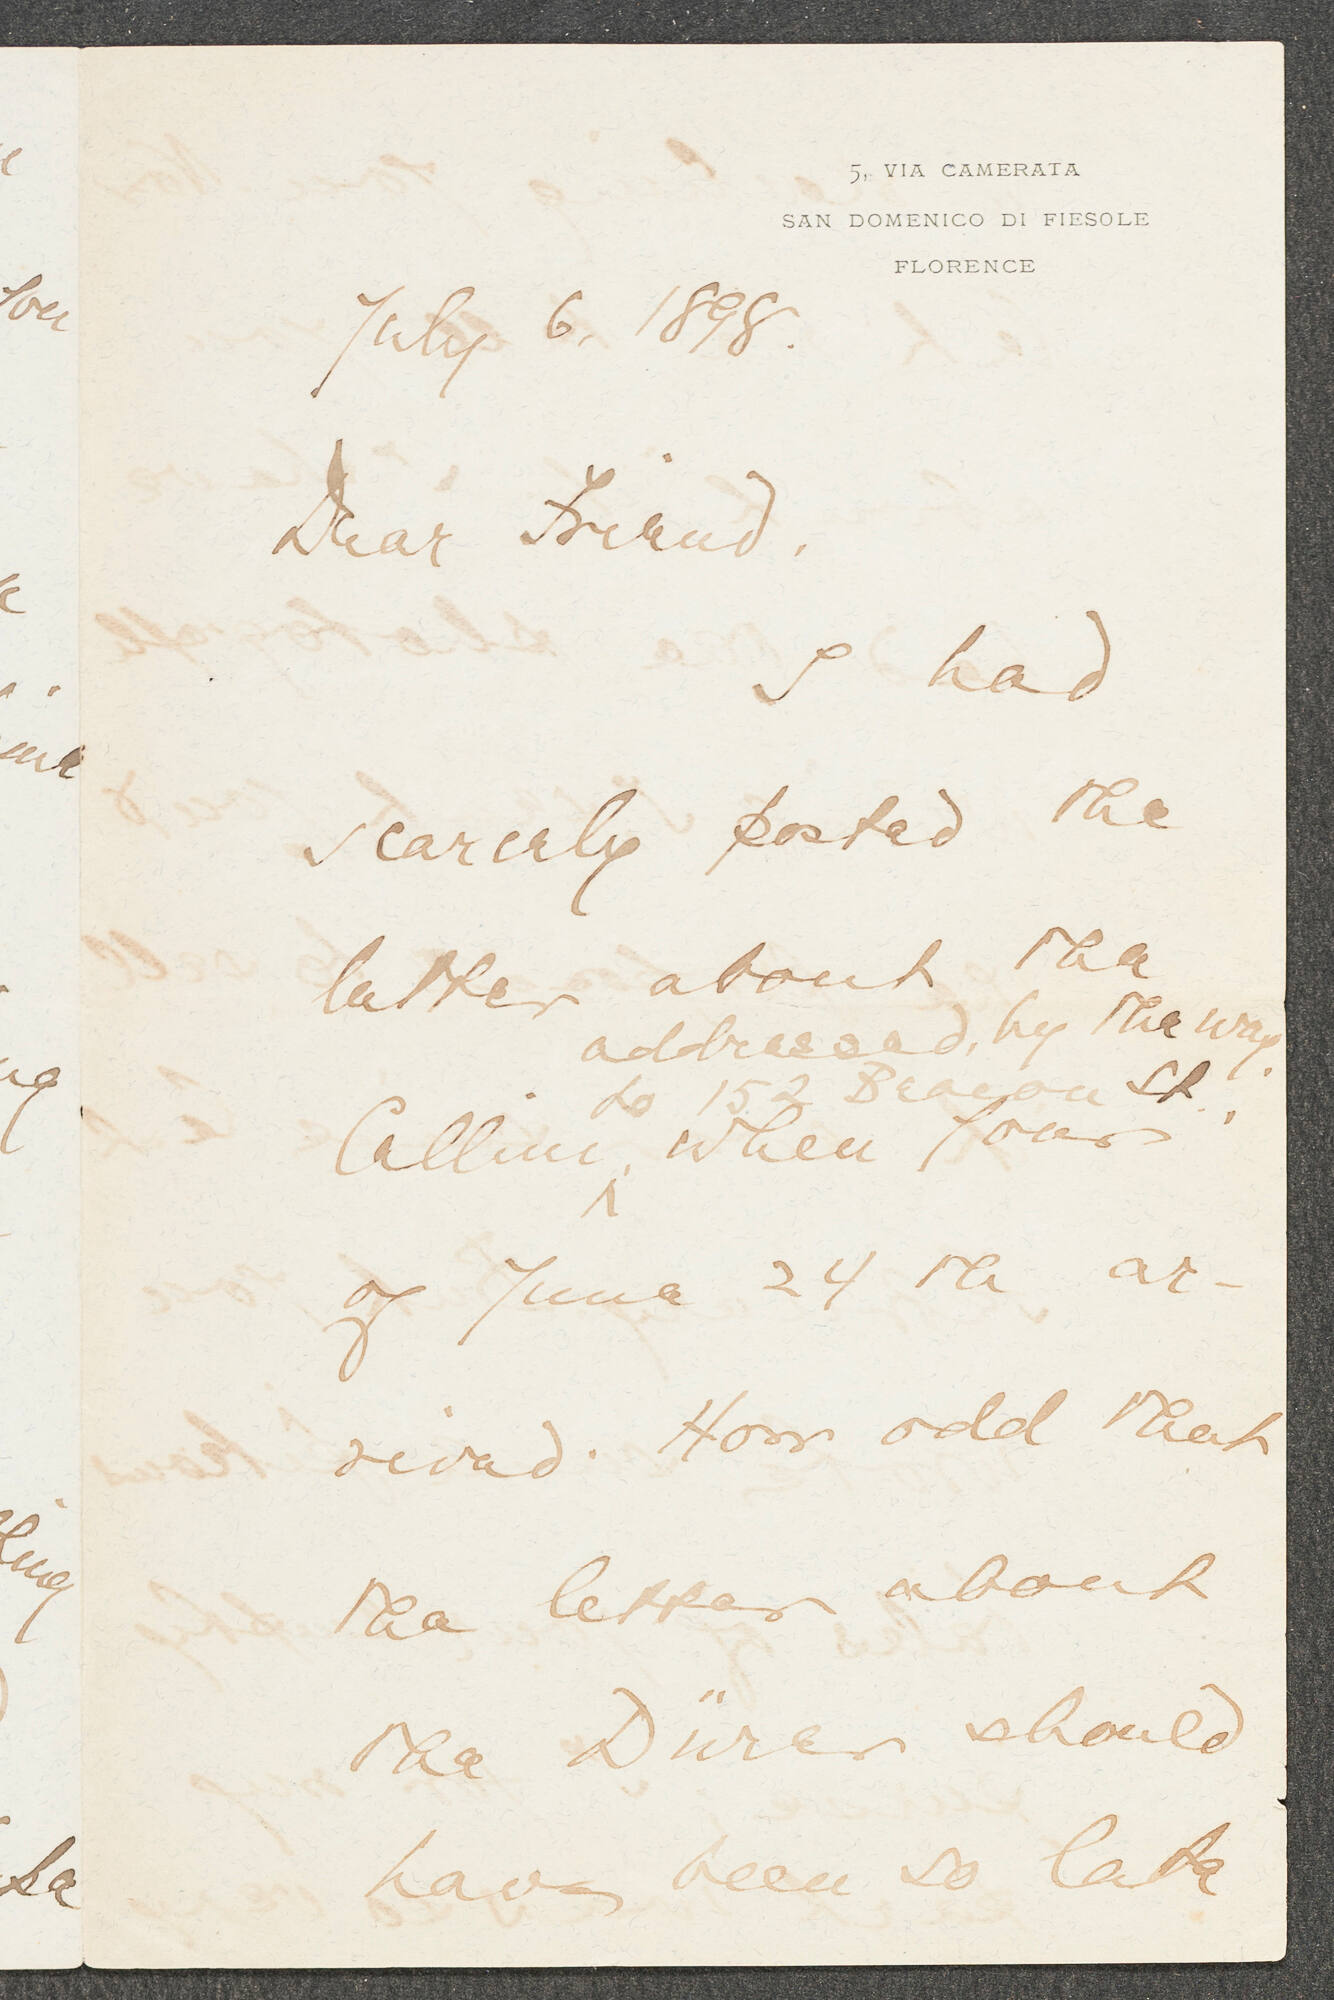 5, VIA CAMERATA
SAN DOMENICO DI FIESOLE
FLORENCE
July 6, 1898.
Dear Friend,
I had
scarcely posted the
letter about the
addressed, by the way,
to 152 Beacon St.,
Cellini, when yours
of June 24 th ar-
rived. How odd that
the letter about
the Dürer should
have been so late